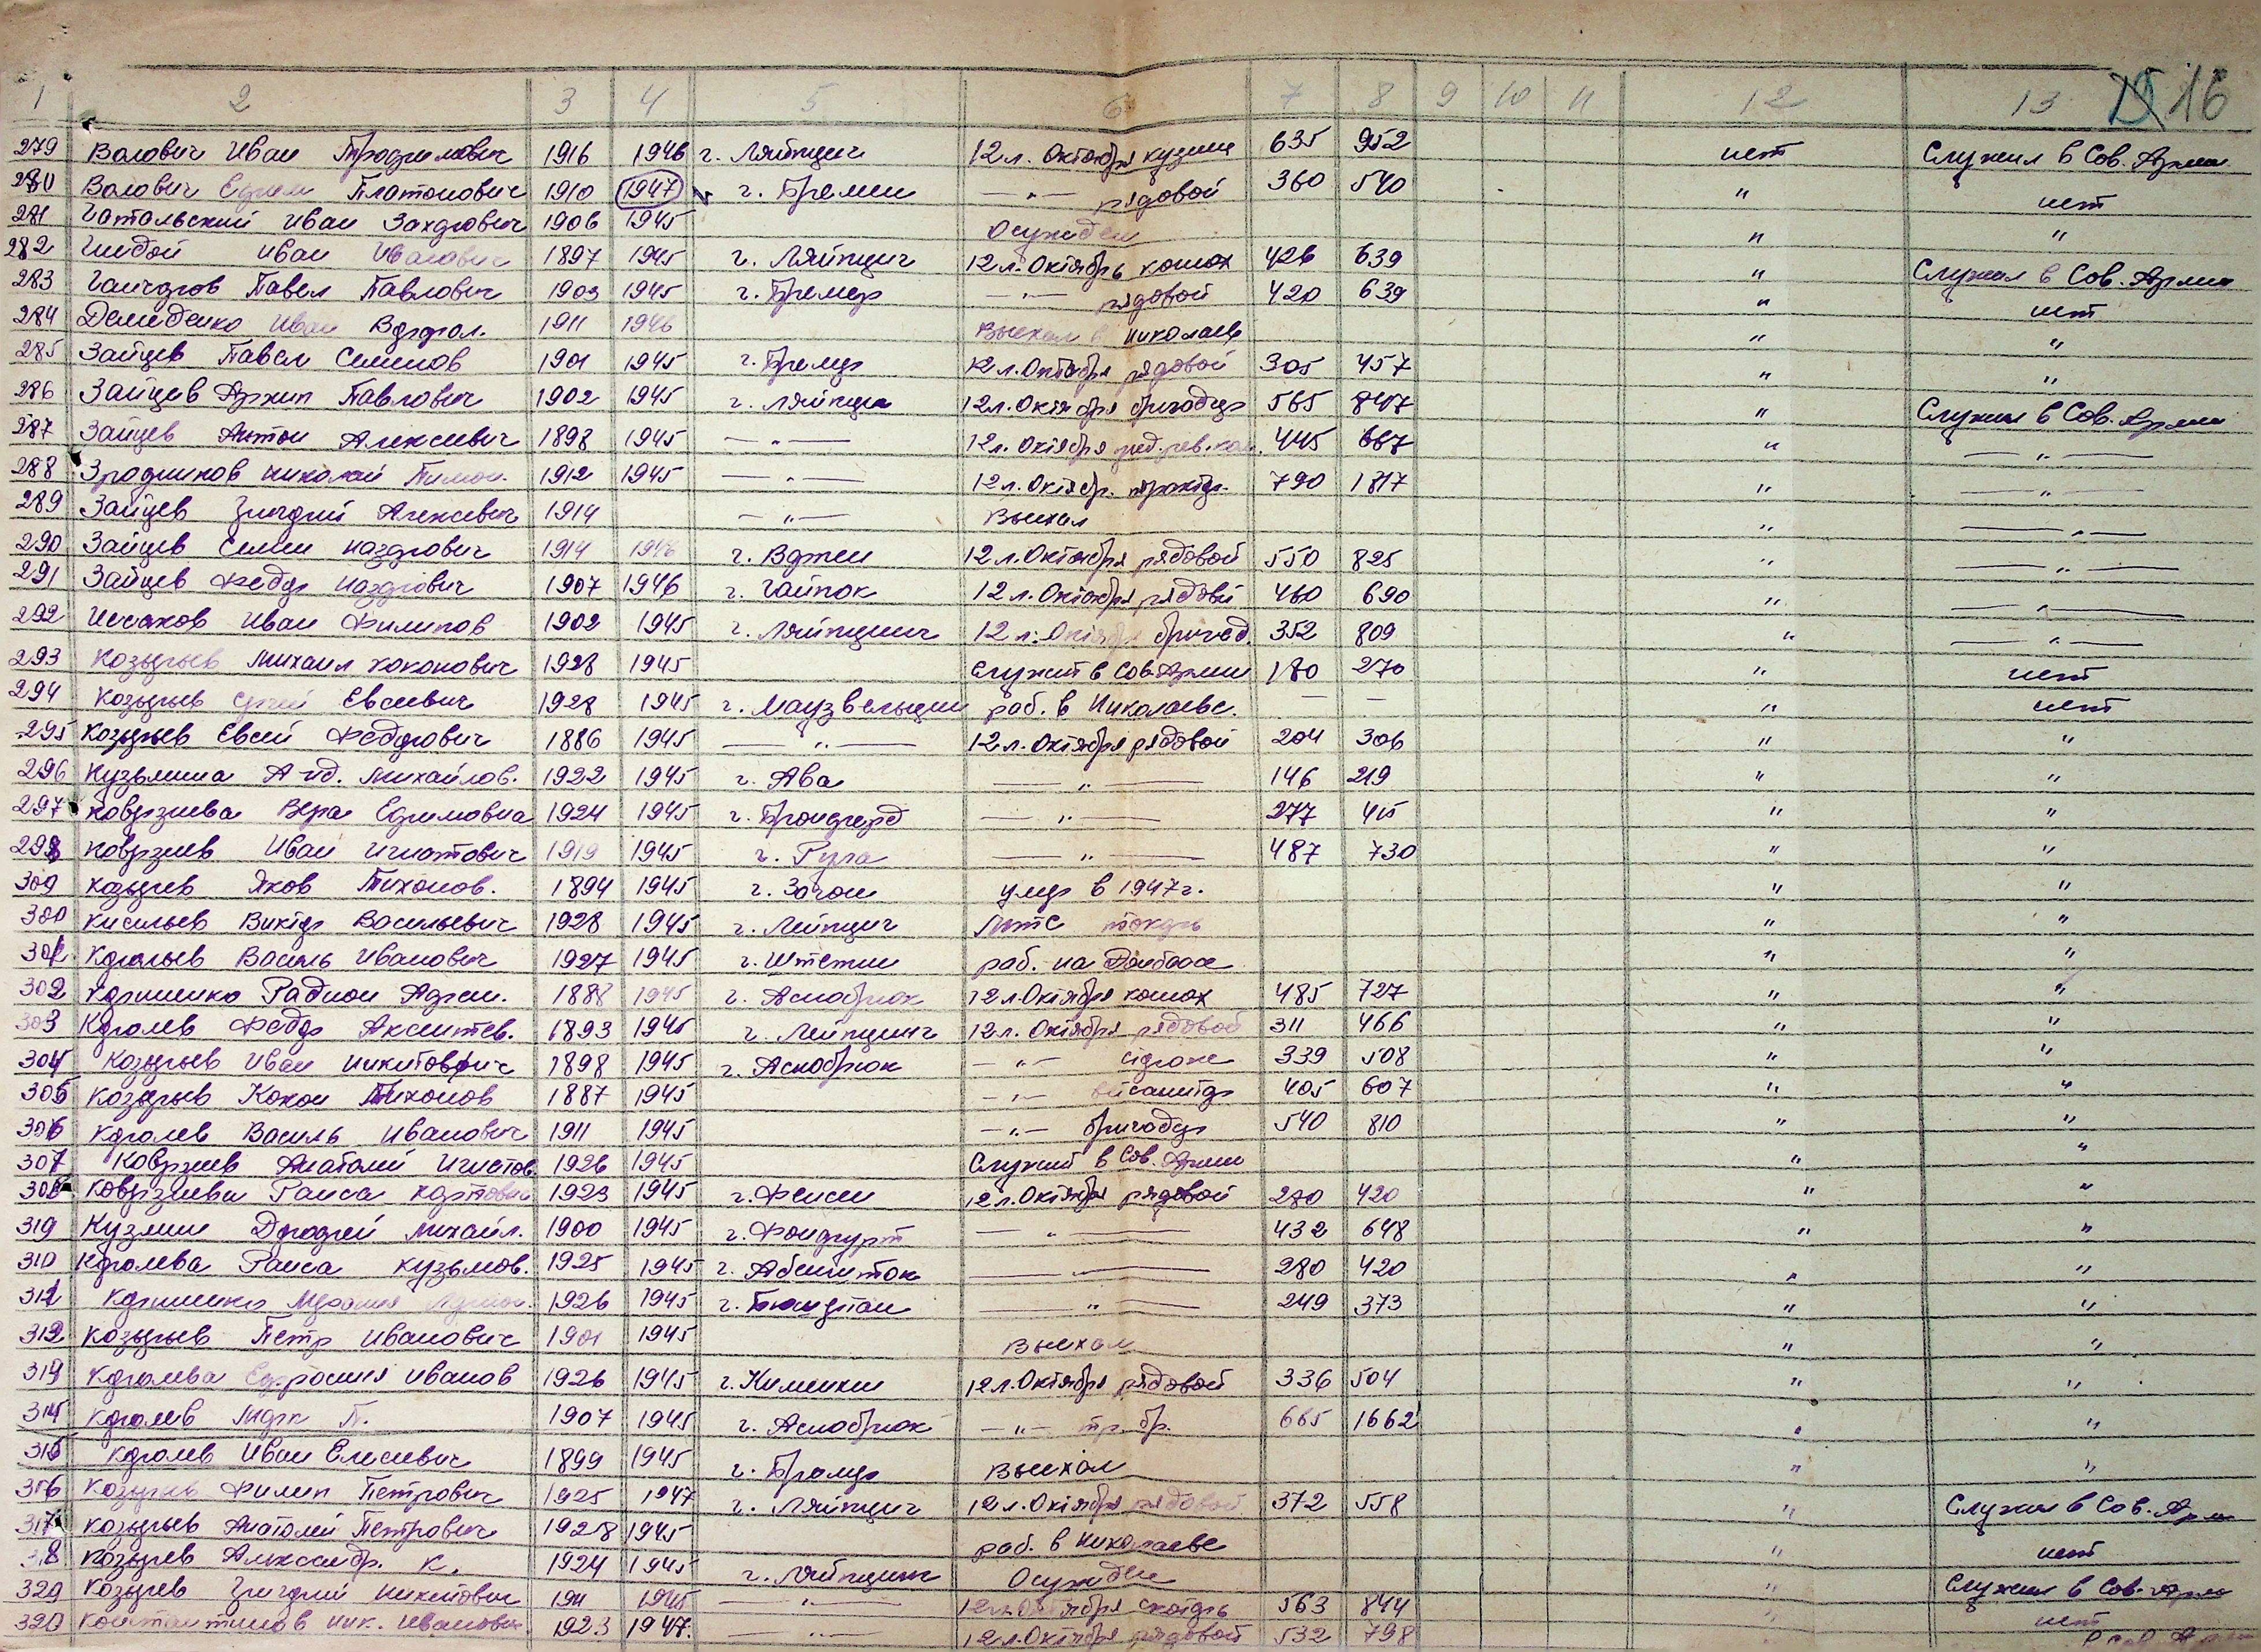 1 2 3 4 5 6 7 8 9 10 11 12 13 16
279 Волович Иван Трофимович 1916 1946 г. Ляйпциг 12 л. Октября кузнец 635 952 нет Служил в Сов. Армии
280 Волович Ефим Платонович 1910 1947 г. Бремен —"— рядовой 360 540 " нет
281 Гатальский Иван Захарович 1906 1945 Осужден " "
282 Иван Иванович 1897 1945 г. Ляйпциг 12 л. Октябрь конюх 426 639 " Служил в Сов. Армии
283 Гончаров Павел Павлович 1903 1945 г. Бремер —"— рядовой 420 639 " нет
284 Демиденко Иван 1911 1946 Выехал в Николаев " "
285 Зайцев Павел Семенов 1901 1945 г. Бремер 12 л. Октября рядовой 305 457 " "
286 Зайцев Архип Павлович 1902 1945 г. Ляйпциг 12 л. Октября бригадир 565 847 " Служил в Сов. Армии
287 Зайцев Антон Алексеевич 1898 1945 —"— 12 л. Октября пред. рев. ком. 445 667 " —"—
288 Николай Тимох. 1912 1945 —"— 12 л. Октябр. трактор. 790 1817 " —"—
289 Зайцев Григорий Алексеевич 1914 —"— Выехал " —"—
290 Зайцев Семен Назарович 1914 1946 г. 12 л. Октября рядовой 550 825 " —"—
291 Зайцев Федор Назарович 1907 1946 г. Гайнок 12 л. Октября рядовй 460 690 " —"—
292 Иссаков Иван Филипов 1902 1945 г. Ляйпцинг 12 л. Октября бригад. 352 809 " —"—
293 Козырев Михаил Коконович 1928 1945 Служит в Сов. Армии 180 270 " нет
294 Козырьев Евсевич 1928 1945 г. раб. в Николаеве. — — " нет
295 Козырьев Евсей Федорович 1886 1945 —"— 12 л. Октября рядовой 204 306 " "
296 Кузьмина Михайлов. 1922 1945 г. Ава —"— 146 219 " "
297 Коврзнева Вера Ефимовна 1924 1945 г. —"— 277 415 " "
298 Коврзнев Иван Игнатович 1919 1945 г. Руга —"— 487 730 " "
309 Козырев Яков Тихонов. 1894 1945 г. умер в 1947 г. " "
300 Кисильев Виктор Васильевич 1928 1945 г. Лейпциг МТС токарь " "
301 Корольев Василь Иванович 1927 1945 г. Штетин раб. на Донбасе " "
302 Корниенко Радион 1888 1945 г. Аснобрюк 12 л. Октября конюх 485 727 " "
303 Королев Федор 1893 1945 г. Лейпцинг 12 л. Октября рядовой 311 466 " "
304 Козырьев Иван Никитович 1898 1945 г. Аснобрюк —"— сторож 339 508 " "
305 Козырьев Кокон Тихонов 1887 1945 —"— 405 607 " "
306 Королев Василь Иванович 1911 1945 —"— бригадир 540 810 " "
307 Коврзнев Анатолий Игнатов. 1926 1945 Служит в Сов. Армии " "
308 Коврзнева Раиса 1923 1945 г. 12 л. Октября рядовой 280 420 " "
319 Кузмин Михайл. 1900 1945 г. —"— 432 648 " "
310 Королева Раиса Кузьмов. 1925 1945 г. —"— 280 420 " "
311 Корниенко 1926 1945 г. —"— 249 373 " "
312 Козырьев Петр Иванович 1901 1945 Выехал " "
313 Королева Ефросиния Иванов 1926 1945 г. 12 л. Октября рядовой 336 504 " "
314 Королев Марк П. 1907 1945 г. Аснобрюк —"— тр. бр. 665 1662 " "
315 Королев Иван Елисеевич 1899 1945 г. Бремер Выехал " "
316 Козырев Филип Петрович 1925 1947 г. Ляйпциг 12 л. Октября рядовой 372 558 " Служил в Сов. Арм
317 Козырьев Анатолий Петрович 1928 1945 раб. в Николаеве " нет
318 Козырев Александр. К. 1924 1945 г. Ляйпцинг Осужден " Служил в Сов. Арм
329 Козырев Григорий Никитович 1911 1945 —"— 12 л. Октября 563 844 " нет
320 Константинов Ник. Иванович 1923 1947. —"— 12 л. Октября рядовой 532 798